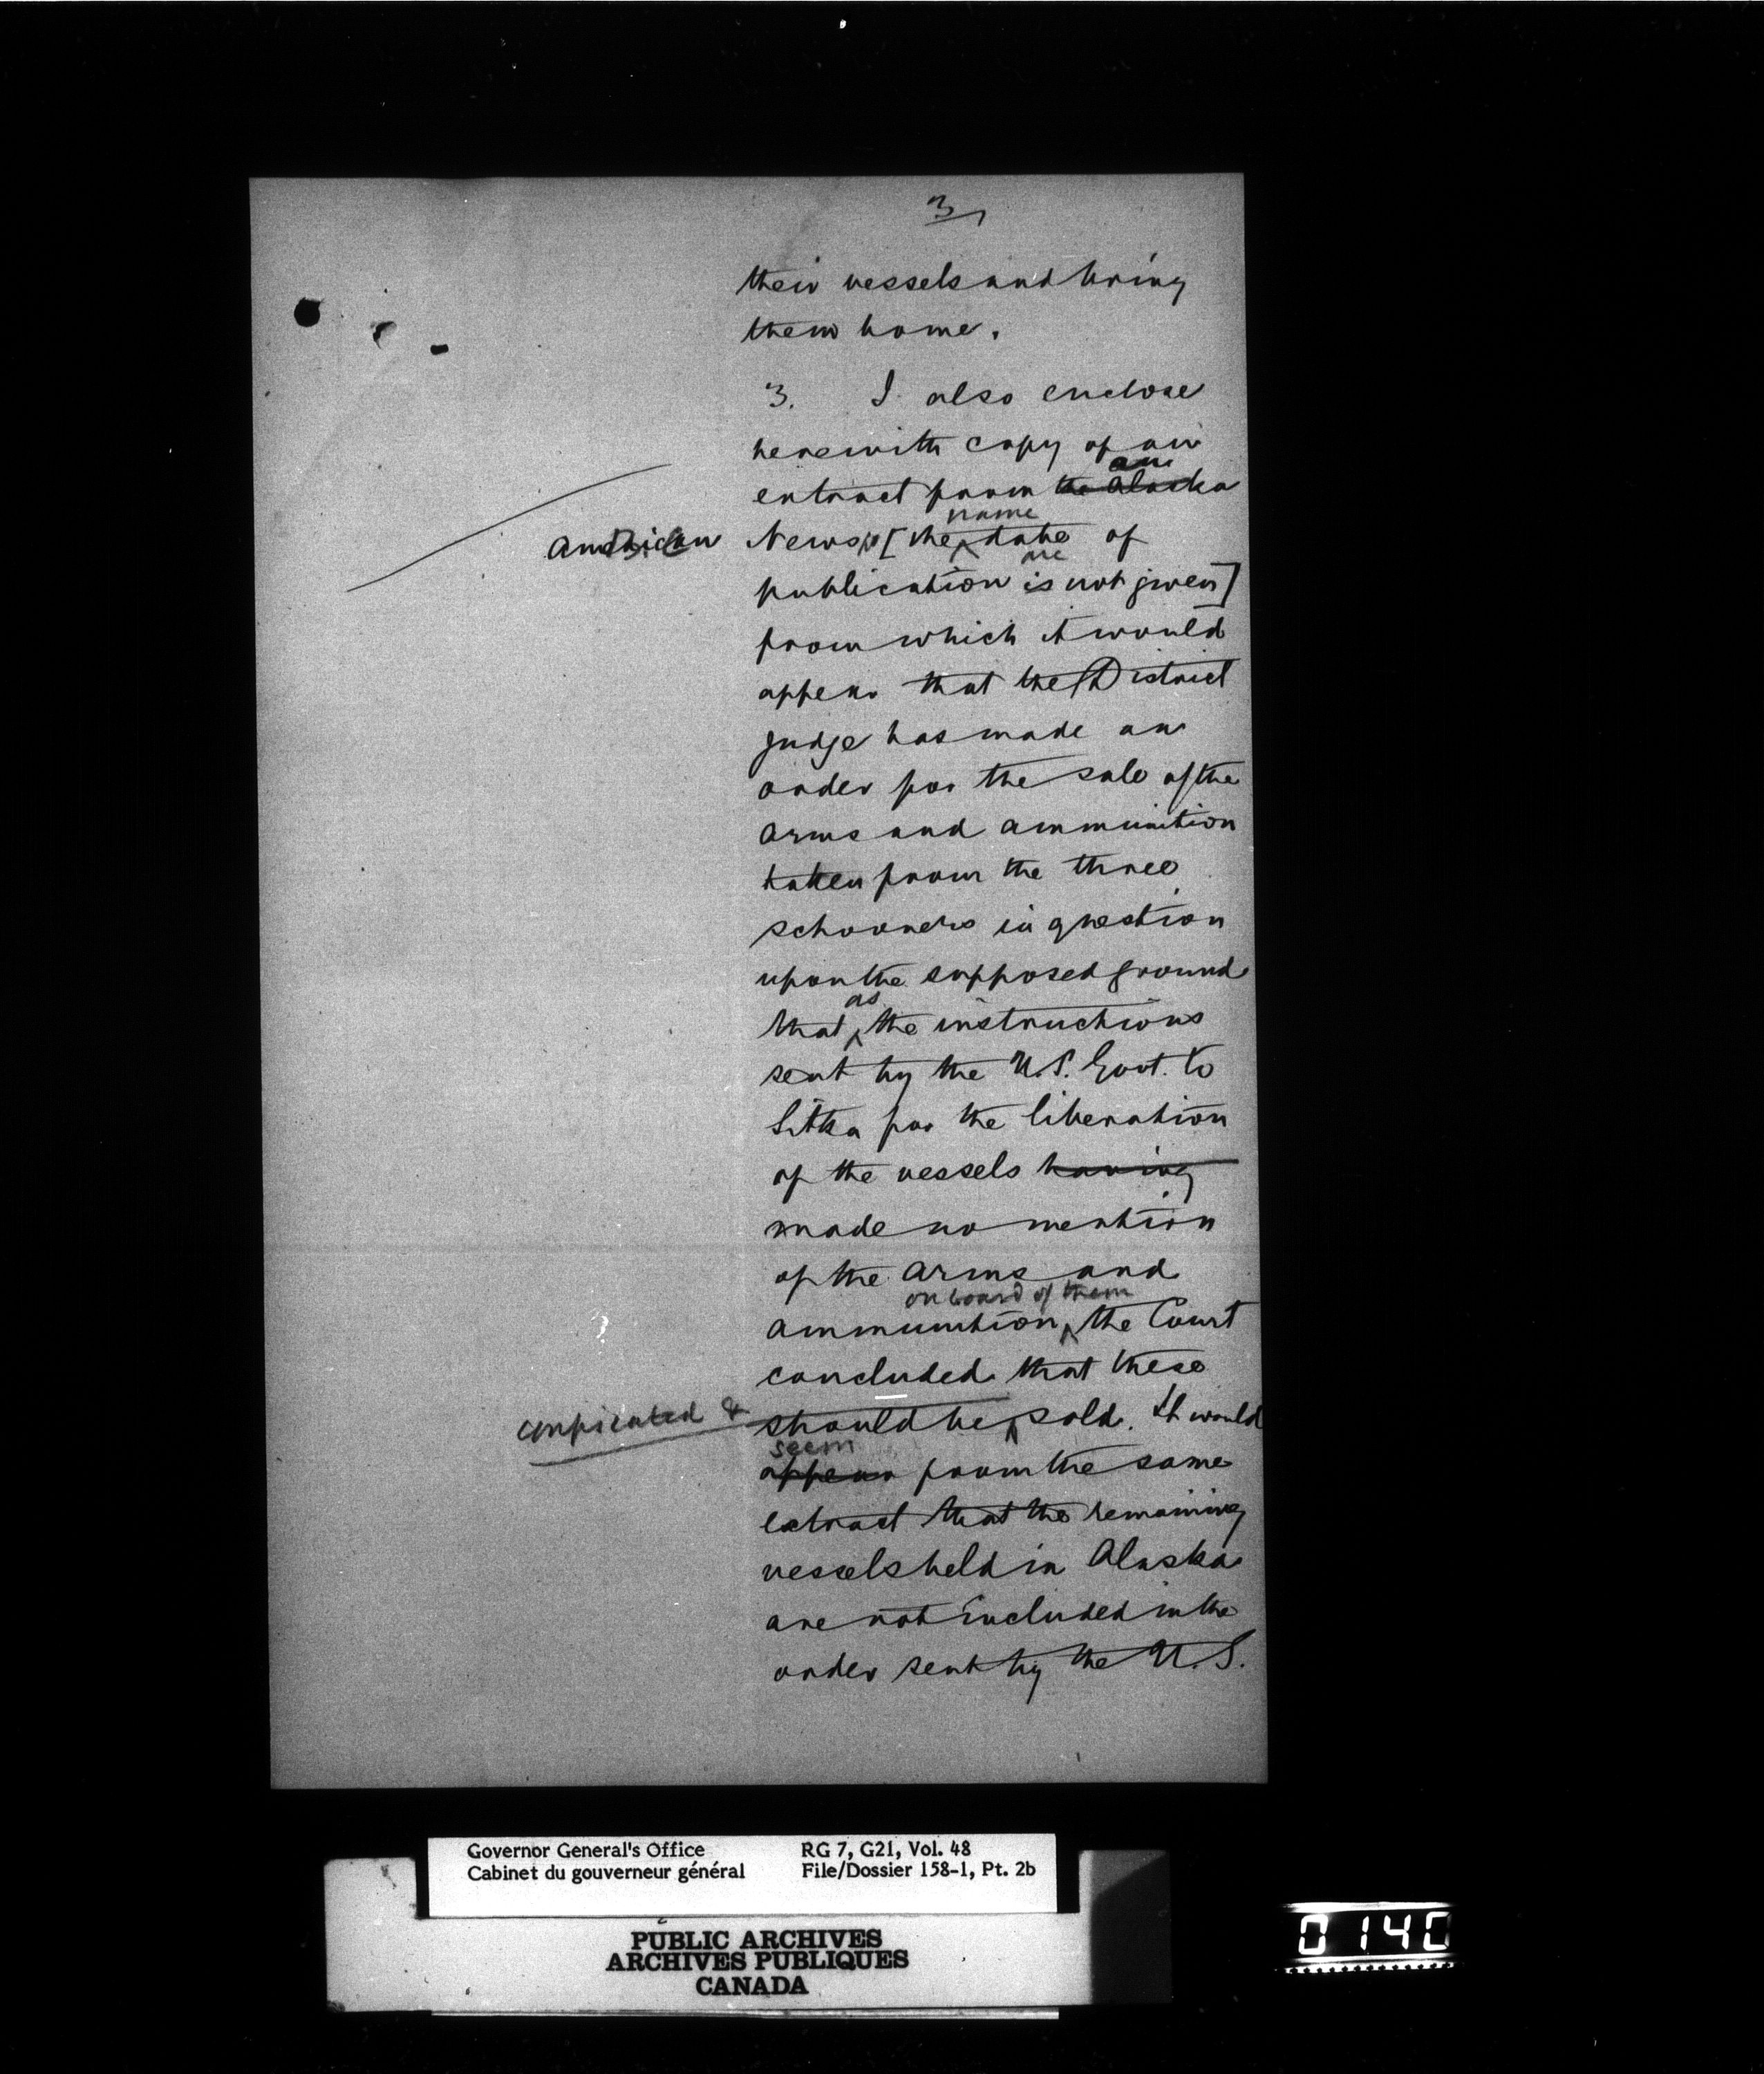 3
their vessels and bring
them home.
3. I also enclose
herewith copy of an
an
extract from the Alaska
name
American Newsp [the date of
are
publication is not given]
from which it would
appear that the District
Judge has made an
order for the sale of the
arms and ammunition
taken from the three
schooners in question
upon the supposed ground
as
that the instructions
sent by the U.S. Govt. to
Sitka for the liberation
of the vessels having
made no mention
of the arms and
on board of them
ammunition, the Court
concluded that these
confiscated &
should be sold. It would
seem
appear from the same
extract that the remaining
vessels held in Alaska
are not included in the
order sent by the U.S.
Governor General's Office RG 7, G21, Vol. 48
Cabinet du gouverneur général File/Dossier 158-1, Pt. 2b
PUBLIC ARCHIVES
ARCHIVES PUBLIQUES
CANADA
0140